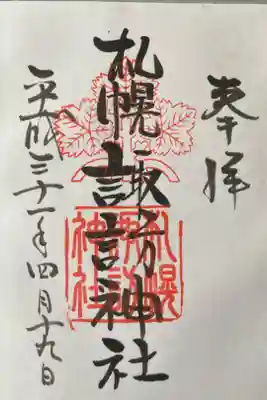 奉拝
札幌諏訪神社
平成三十一年四月十九日
札幌
諏訪
神社